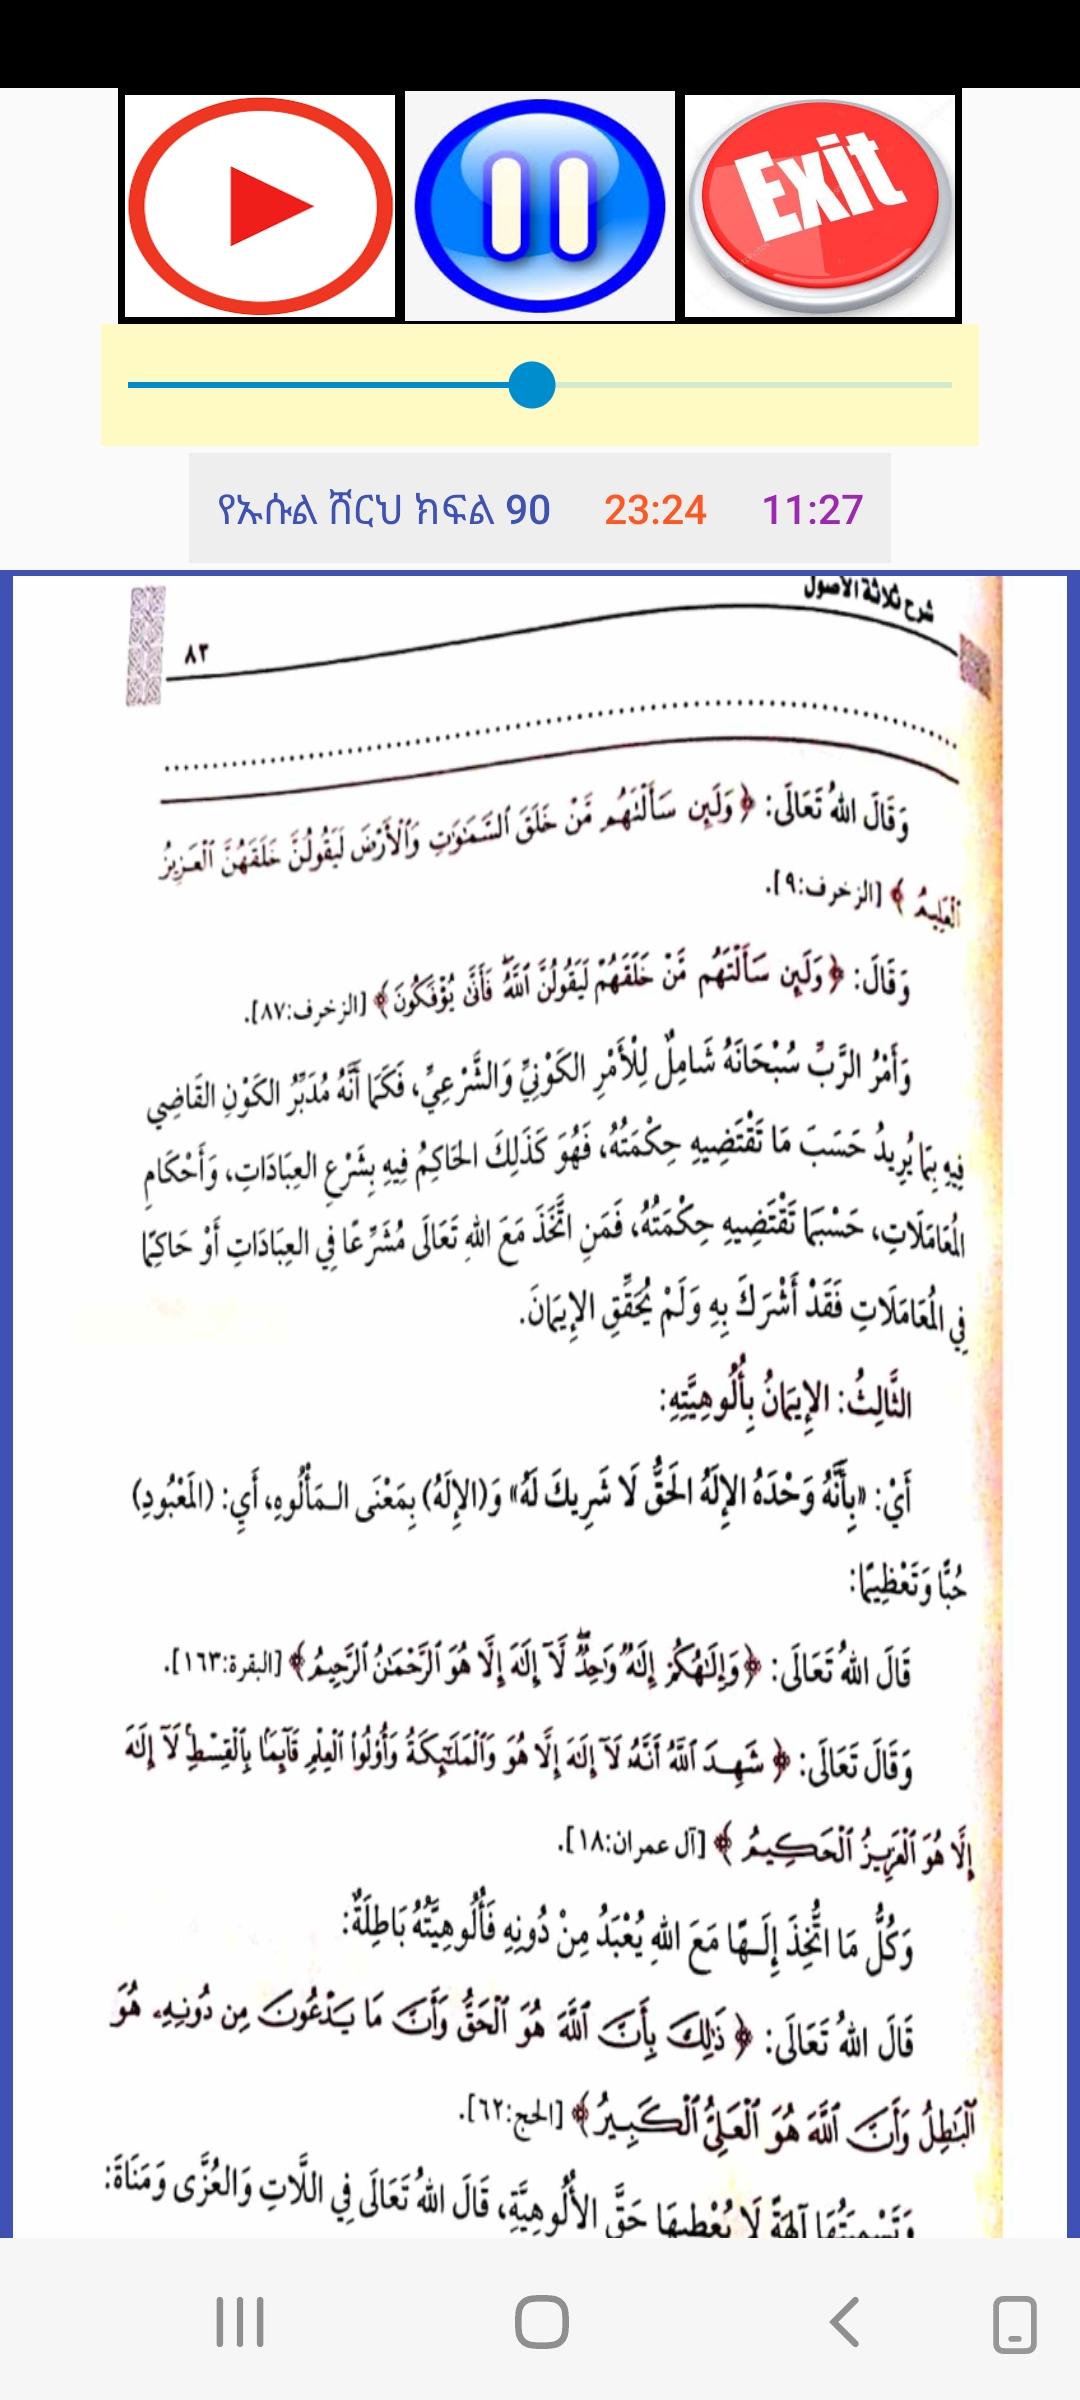 Exit
የኡሱል ሸርህ ክፍል 90 23:24 11:27
شرح ثلاثة الأصول
٨٣
وَقَالَ اللهُ تَعَالَى: ﴿وَلَئِن سَأَلْتَهُم مَّنْ خَلَقَ ٱلسَّمَٰوَٰتِ وَٱلْأَرْضَ لَيَقُولُنَّ خَلَقَهُنَّ ٱلْعَزِيزُ
ٱلْعَلِيمُ ﴾ [الزخرف:٩].
وَقَالَ: ﴿وَلَئِن سَأَلْتَهُم مَّنْ خَلَقَهُمْ لَيَقُولُنَّ ٱللَّهُ ۖ فَأَنَّىٰ يُؤْفَكُونَ﴾ [الزخرف:٨٧].
وَأَمْرُ الرَّبِّ سُبْحَانَهُ شَامِلٌ لِلْأَمْرِ الكَوْنِيِّ وَالشَّرْعِيِّ، فَكَمَا أَنَّهُ مُدَبِّرُ الكَوْنِ القَاضِي
فِيهِ بِمَا يُرِيدُ حَسَبَ مَا تَقْتَضِيهِ حِكْمَتُهُ، فَهُوَ كَذَلِكَ الحَاكِمُ فِيهِ بِشَرْعِ العِبَادَاتِ، وَأَحْكَامِ
المُعَامَلَاتِ، حَسْبَمَا تَقْتَضِيهِ حِكْمَتُهُ، فَمَنِ اتَّخَذَ مَعَ اللهِ تَعَالَى مُشَرِّعًا فِي العِبَادَاتِ أَوْ حَاكِمًا
فِي المُعَامَلَاتِ فَقَدْ أَشْرَكَ بِهِ وَلَمْ يُحَقِّقِ الإِيمَانَ.
الثَّالِثُ: الإِيمَانُ بِأُلُوهِيَّتِهِ:
أَيْ: «بِأَنَّهُ وَحْدَهُ الإِلَهُ الحَقُّ لَا شَرِيكَ لَهُ» وَ(الإِلَهُ) بِمَعْنَى الـمَأْلُوهِ، أَيِ: (المَعْبُودِ)
حُبًّا وَتَعْظِيمًا:
قَالَ اللهُ تَعَالَى: ﴿وَإِلَٰهُكُمْ إِلَٰهٌ وَٰحِدٌ ۖ لَّآ إِلَٰهَ إِلَّا هُوَ ٱلرَّحْمَٰنُ ٱلرَّحِيمُ﴾ [البقرة:١٦٣].
وَقَالَ تَعَالَى: ﴿ شَهِدَ ٱللَّهُ أَنَّهُۥ لَآ إِلَٰهَ إِلَّا هُوَ وَٱلْمَلَٰٓئِكَةُ وَأُو۟لُوا۟ ٱلْعِلْمِ قَآئِمًۢا بِٱلْقِسْطِ ۚ لَآ إِلَٰهَ
إِلَّا هُوَ ٱلْعَزِيزُ ٱلْحَكِيمُ ﴾ [آل عمران:١٨].
وَكُلُّ مَا اتُّخِذَ إِلَـهًا مَعَ اللهِ يُعْبَدُ مِنْ دُونِهِ فَأُلُوهِيَّتُهُ بَاطِلَةٌ:
قَالَ اللهُ تَعَالَى: ﴿ ذَٰلِكَ بِأَنَّ ٱللَّهَ هُوَ ٱلْحَقُّ وَأَنَّ مَا يَدْعُونَ مِن دُونِهِۦ هُوَ
ٱلْبَٰطِلُ وَأَنَّ ٱللَّهَ هُوَ ٱلْعَلِىُّ ٱلْكَبِيرُ﴾ [الحج:٦٢].
وَتَسْمِيَتُهَا آلِهَةً لَا يُعْطِيهَا حَقَّ الأُلُوهِيَّةِ، قَالَ اللهُ تَعَالَى فِي اللَّاتِ وَالعُزَّى وَمَنَاةَ: